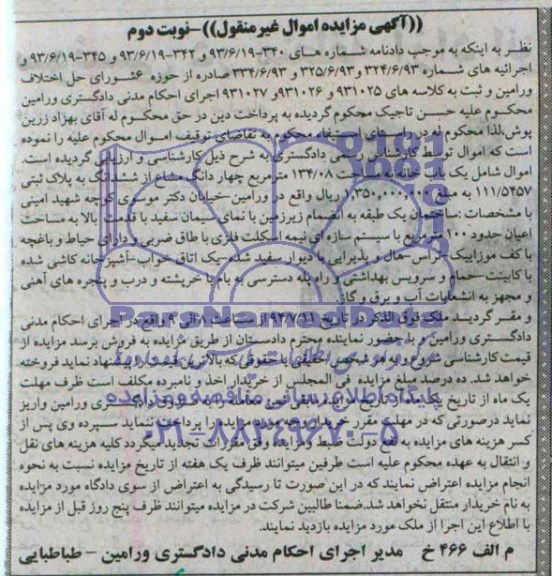 ((آگهی مزایده اموال غیرمنقول))-نوبت دوم
نظر به اینکه به موجب دادنامه شماره های ۳۴۰-۹۳/۶/۱۹ و ۳۴۲-۹۳/۶/۱۹ و ۳۴۵-۹۳/۶/۱۹ و
اجرائیه های شماره ۳۲۴/۶/۹۳ و ۳۲۵/۶/۹۳ و ۳۳۴/۶/۹۳ صادره از حوزه ۶شورای حل اختلاف
ورامین و ثبت به کلاسه های ۹۳۱۰۲۵ و ۹۳۱۰۲۶ و ۹۳۱۰۲۷ اجرای احکام مدنی دادگستری ورامین
محکوم علیه حسن تاجیک محکوم گردیده به پرداخت دین در حق محکوم له آقای بهزاد زرین
پوش.لذا محکوم له در راستای استیفاء محکوم به تقاضای توقیف اموال محکوم علیه را نموده
است که اموال توسط کارشناس رسمی دادگستری به شرح ذیل کارشناسی و ارزیابی گردیده است.
اموال شامل یک باب خانه به مساحت ۱۳۴/۰۸ مترمربع چهار دانگ مشاع از ششدانگ به پلاک ثبتی
۱۱۱/۵۴۵۷ به مبلغ ۱,۳۵۰,۰۰۰,۰۰۰ ریال واقع در ورامین-خیابان دکتر موسوی کوچه شهید امینی
با مشخصات :ساختمان یک طبقه به انضمام زیرزمین با نمای سیمان سفید با قدمت بالا به مساحت
اعیان حدود ۱۰۰ مترمربع با سیستم سازه ای نیمه اسکلت فلزی با طاق ضربی و دارای حیاط و باغچه
با کف موزاییک-تراس-هال و پذیرایی با دیوار سفید شده-یک اتاق خواب-آشپزخانه کاشی شده
با کابینت-حمام و سرویس بهداشتی و راه پله دسترسی به بام با خرپشته و درب و پنجره های آهنی
و مجهز به انشعابات آب و برق و گاز.
و مقرر گردید ملک فوق الذکر در تاریخ ۹۳/۷/۲۱ از ساعت ۸ الی ۹ واقع در اجرای احکام مدنی
دادگستری ورامین و با حضور نماینده محترم دادستان از طریق مزایده به فروش برسد مزایده از
قیمت کارشناسی شروع و به هر شخص حقیقی یا حقوقی که بالاترین قیمت را پیشنهاد نماید فروخته
خواهد شد. ده درصد مبلغ مزایده فی المجلس از خریدار اخذ و نامبرده مکلف است ظرف مهلت
یک ماه از تاریخ مزایده مابقی دادگستری ورامین واریز
نماید درصورتی که در مهلت مقرر خریدار وجه مورد مزایده را پرداخت ننماید سپرده وی پس از
کسر هزینه های مزایده به نفع دولت ضبط و مزایده وفق مقررات تجدید میگردد کلیه هزینه های نقل
و انتقال به عهده محکوم علیه است طرفین میتوانند ظرف یک هفته از تاریخ مزایده نسبت به نحوه
انجام مزایده اعتراض نمایند که در این صورت تا رسیدگی به اعتراض از سوی دادگاه مورد مزایده
به نام خریدار منتقل نخواهد شد.ضمنا طالبین شرکت در مزایده میتوانند ظرف پنج روز قبل از مزایده
با اطلاع این اجرا از ملک مورد مزایده بازدید نمایند.
م الف ۴۶۶ خ مدیر اجرای احکام مدنی دادگستری ورامین - طباطبایی
ParsNamadData
پایگاه اطلاع رسانی مناقصه و مزایده
۰۲۱-۸۸۳۴۹۶۷۰-۵